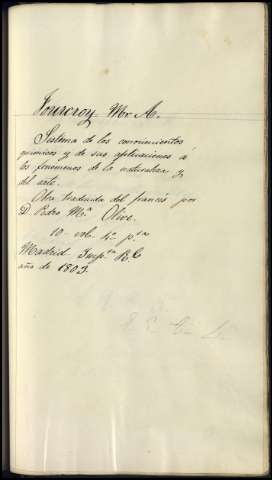 Fourcroy Mr. A.
Sistema de los conocimientos
químicos y de sus aplicaciones á
los fenomenos de la naturaleza y
del arte.
Obra traducida del francés por
D. Pedro Mª Olive.
10 vol. 4º pta
Madrid Impta Rl
año de 1803.